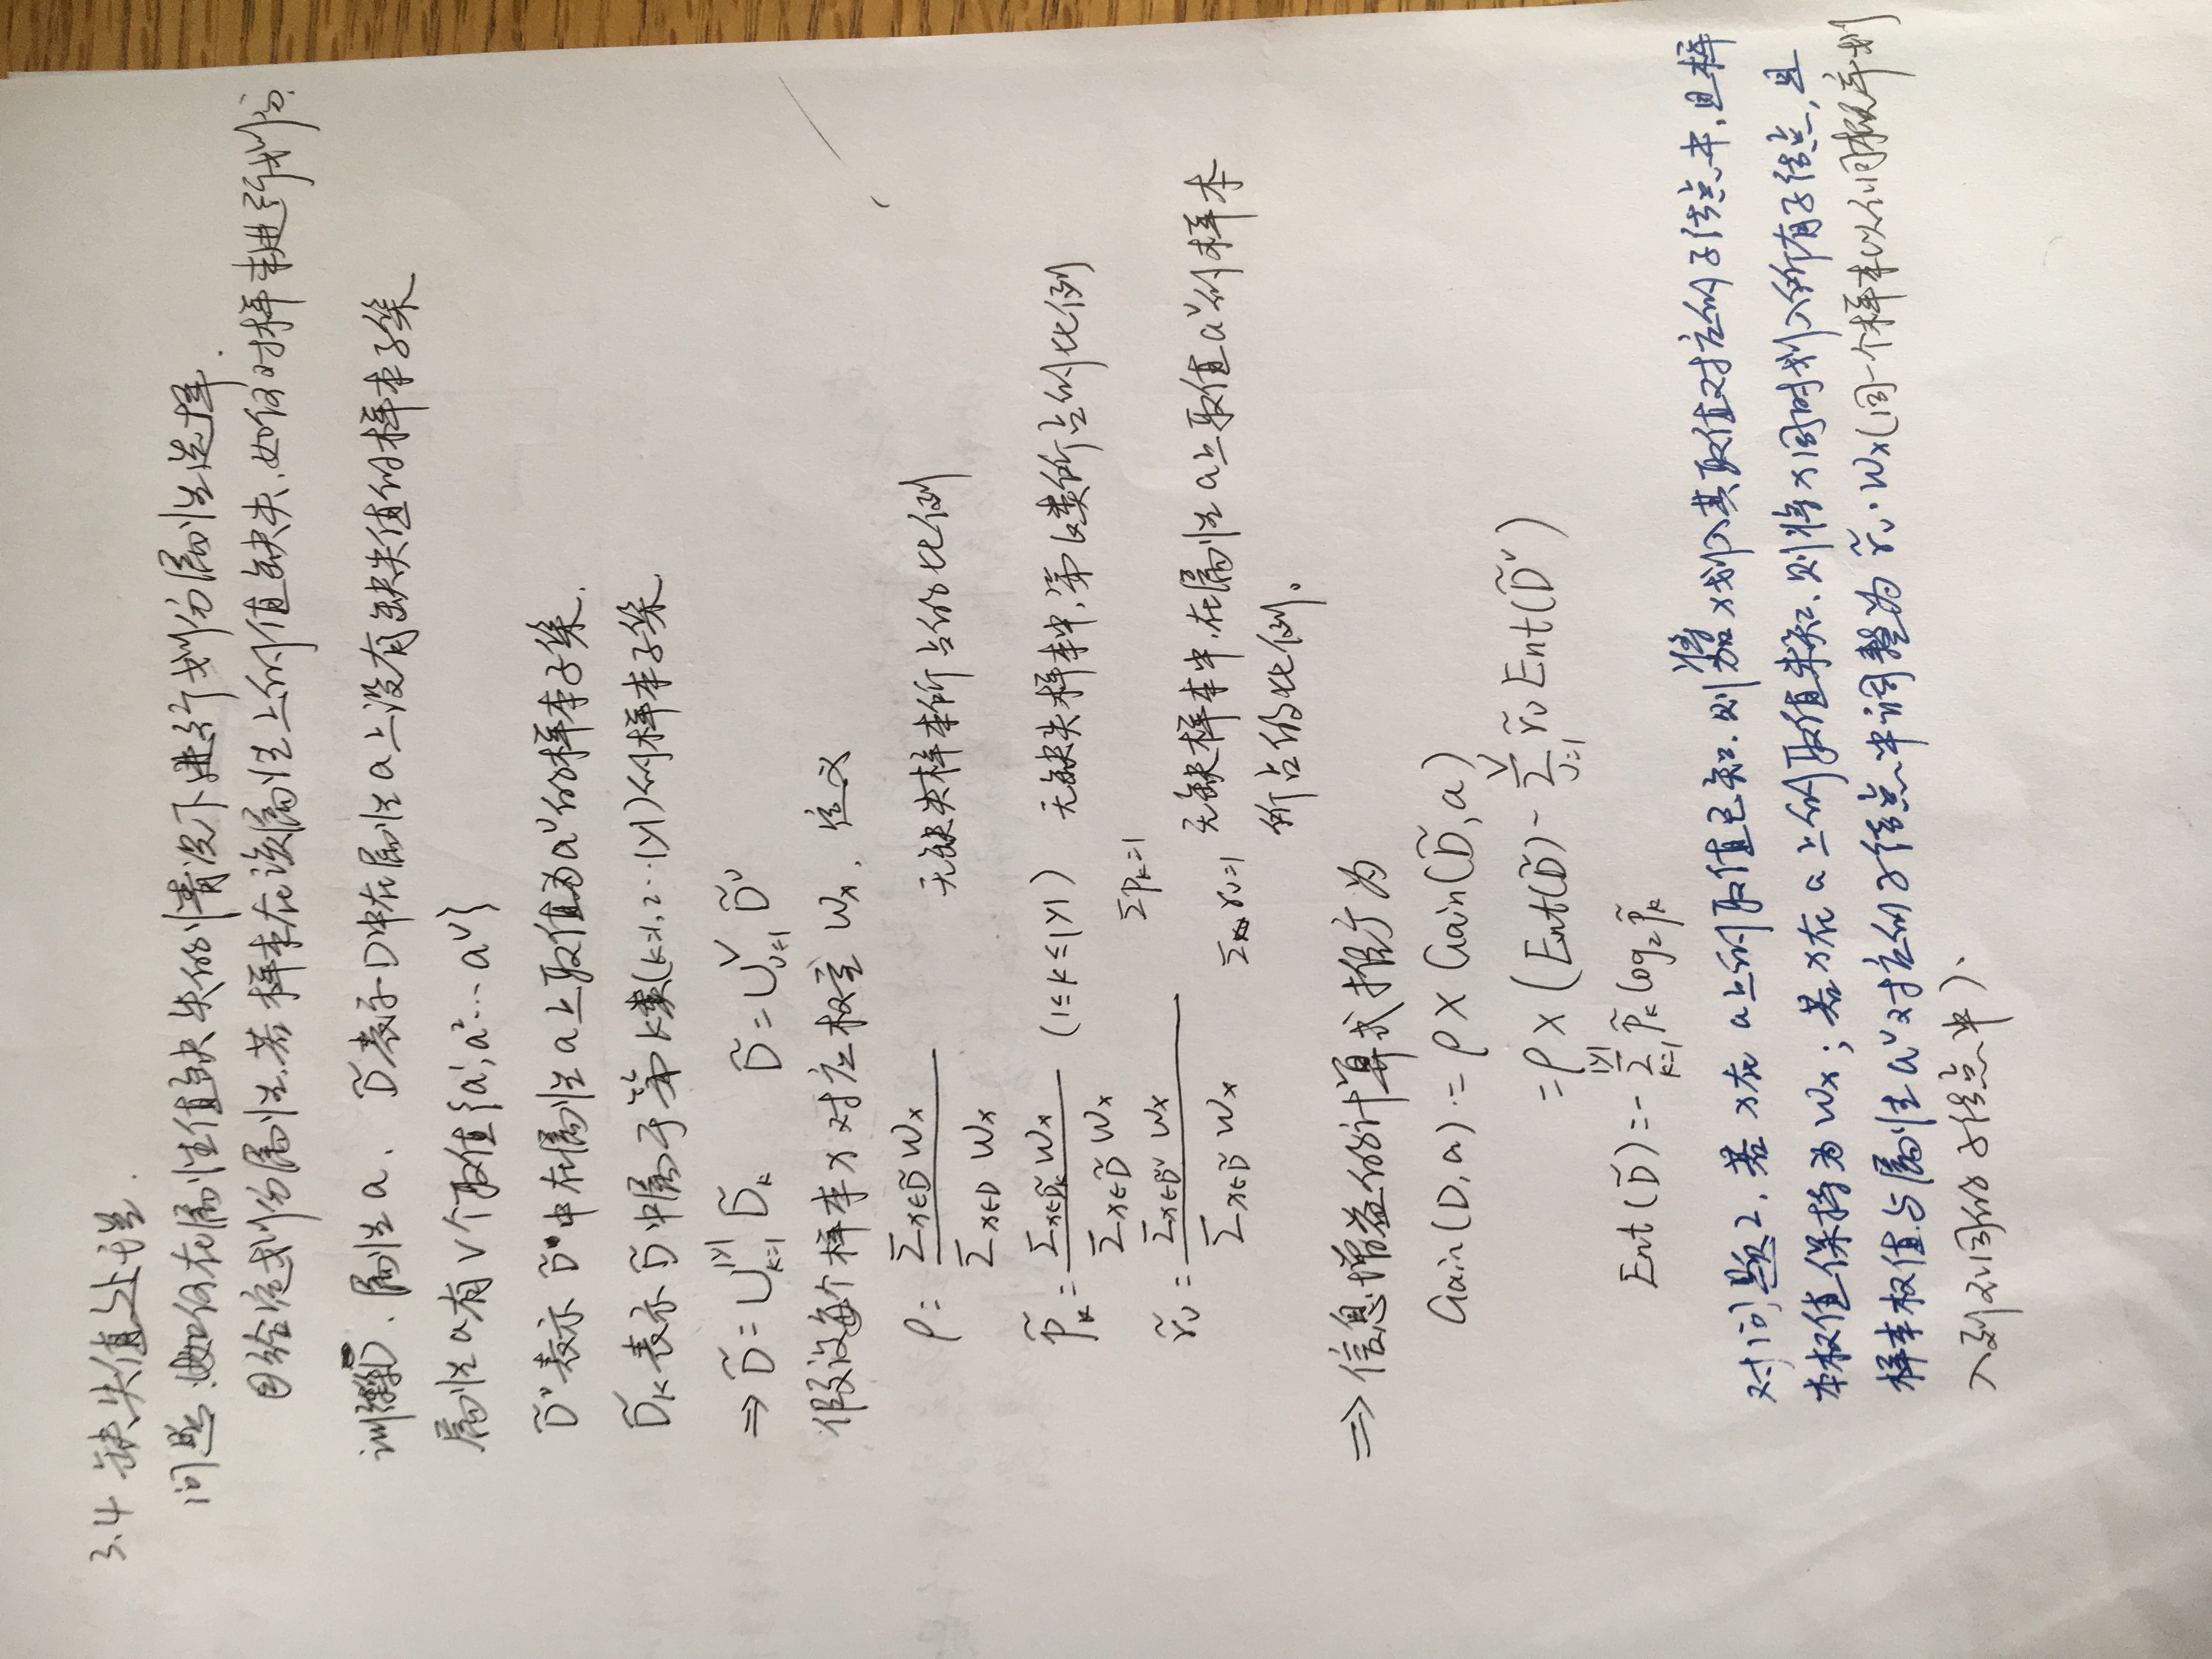 3.4 缺失值处理.
问题.①如何在属性值缺失的情况下进行划分属性选择.
②给定划分属性.若样本在该属性上的值缺失.如何对样本进行划分.
训练集D̃、属性a、D̃表示D中在属性a上没有缺失值的样本子集
属性a有V个取值{a¹,a²…aᵛ}
D̃ᵛ表示D̃中在属性a上取值为aᵛ的样本子集.
D̃ₖ表示D̃中属于第k类(k=1,2…|y|)的样本子集
⇒ D̃=∪ₖ₌₁^|y| D̃ₖ D̃=∪ᵥ₌₁^V D̃ᵛ
假设每个样本x对应权重Wx,定义
ρ= Σx∈D̃ Wx / Σx∈D Wx 无缺失样本所占的比例
p̃ₖ= Σx∈D̃ₖ Wx / Σx∈D̃ Wx (1≤k≤|y|) 无缺失样本中,第k类所占的比例
Σpₖ=1
r̃ᵥ= Σx∈D̃ᵛ Wx / Σx∈D̃ Wx Σrᵥ=1 无缺样本中.在属性a上取值aᵛ的样本
所占的比例。
⇒信息增益的计算式推广为
Gain(D,a)=ρ×Gain(D̃,a)
=ρ×(Ent(D̃)-Σᵥ₌₁^V r̃ᵥ Ent(D̃ᵛ)
Ent(D̃)=-Σₖ₌₁^|y| p̃ₖ log₂ p̃ₖ
对问题2,若x在a上的取值已知.则将x划入其取值对应的子结点中,且样
本权值保持为Wx;若x在a上的取值未知.则将x同时划入所有子结点,且
样本权值与属性aᵛ对应的子结点中调整为r̃ᵥ·Wx(同一个样本以不同概率划
入到不同的子结点中).